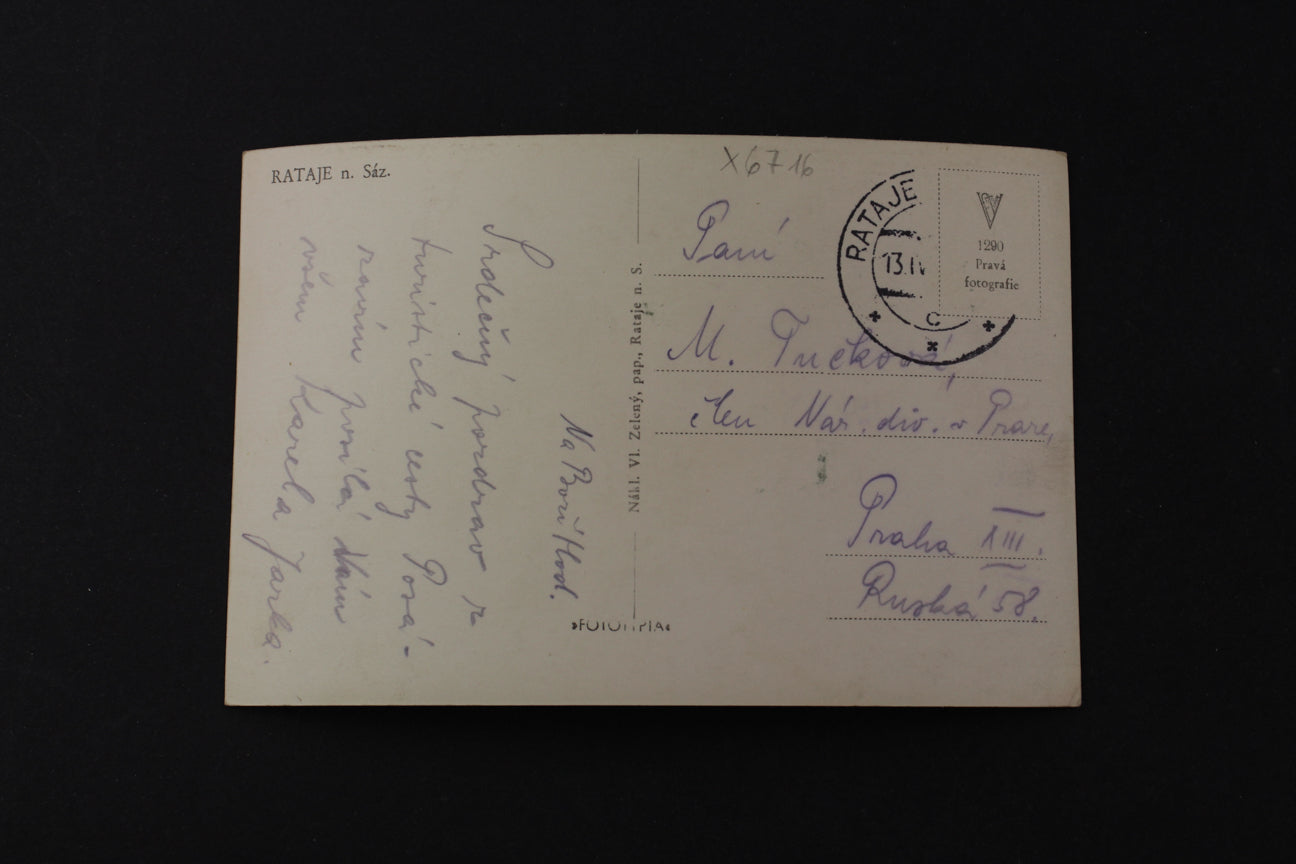 RATAJE n. Sáz.
Na Boží Hod.
Srdečný pozdrav z
turistické cesty Posá-
zavím posílá Vám
všem Karel a Jarka.
Nákl. Vl. Zelený, pap., Rataje n. S.
»FOTOTYPIA«
X6716
RATAJE
13.IV
C
1290
Pravá
fotografie
Paní
M. Tučková,
člen Nár. div. v Praze,
Praha XIII.
Ruská 58.